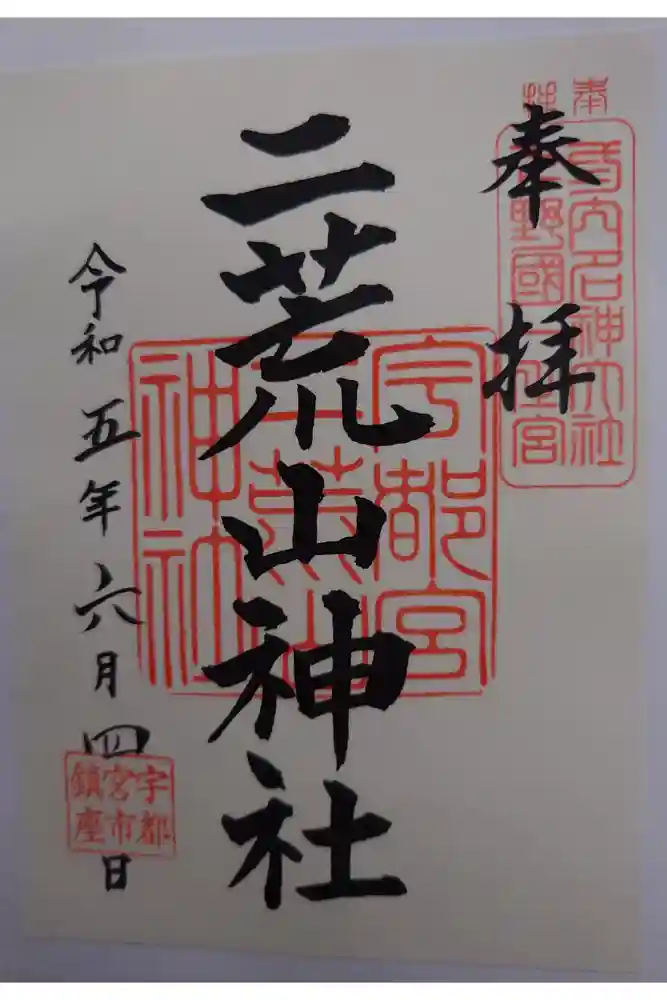 奉拝
式内名神大社
野國 宮
奉拝
宇都宮
二荒山
神社
二荒山神社
令和五年六月四日
宇都
宮市
鎮座